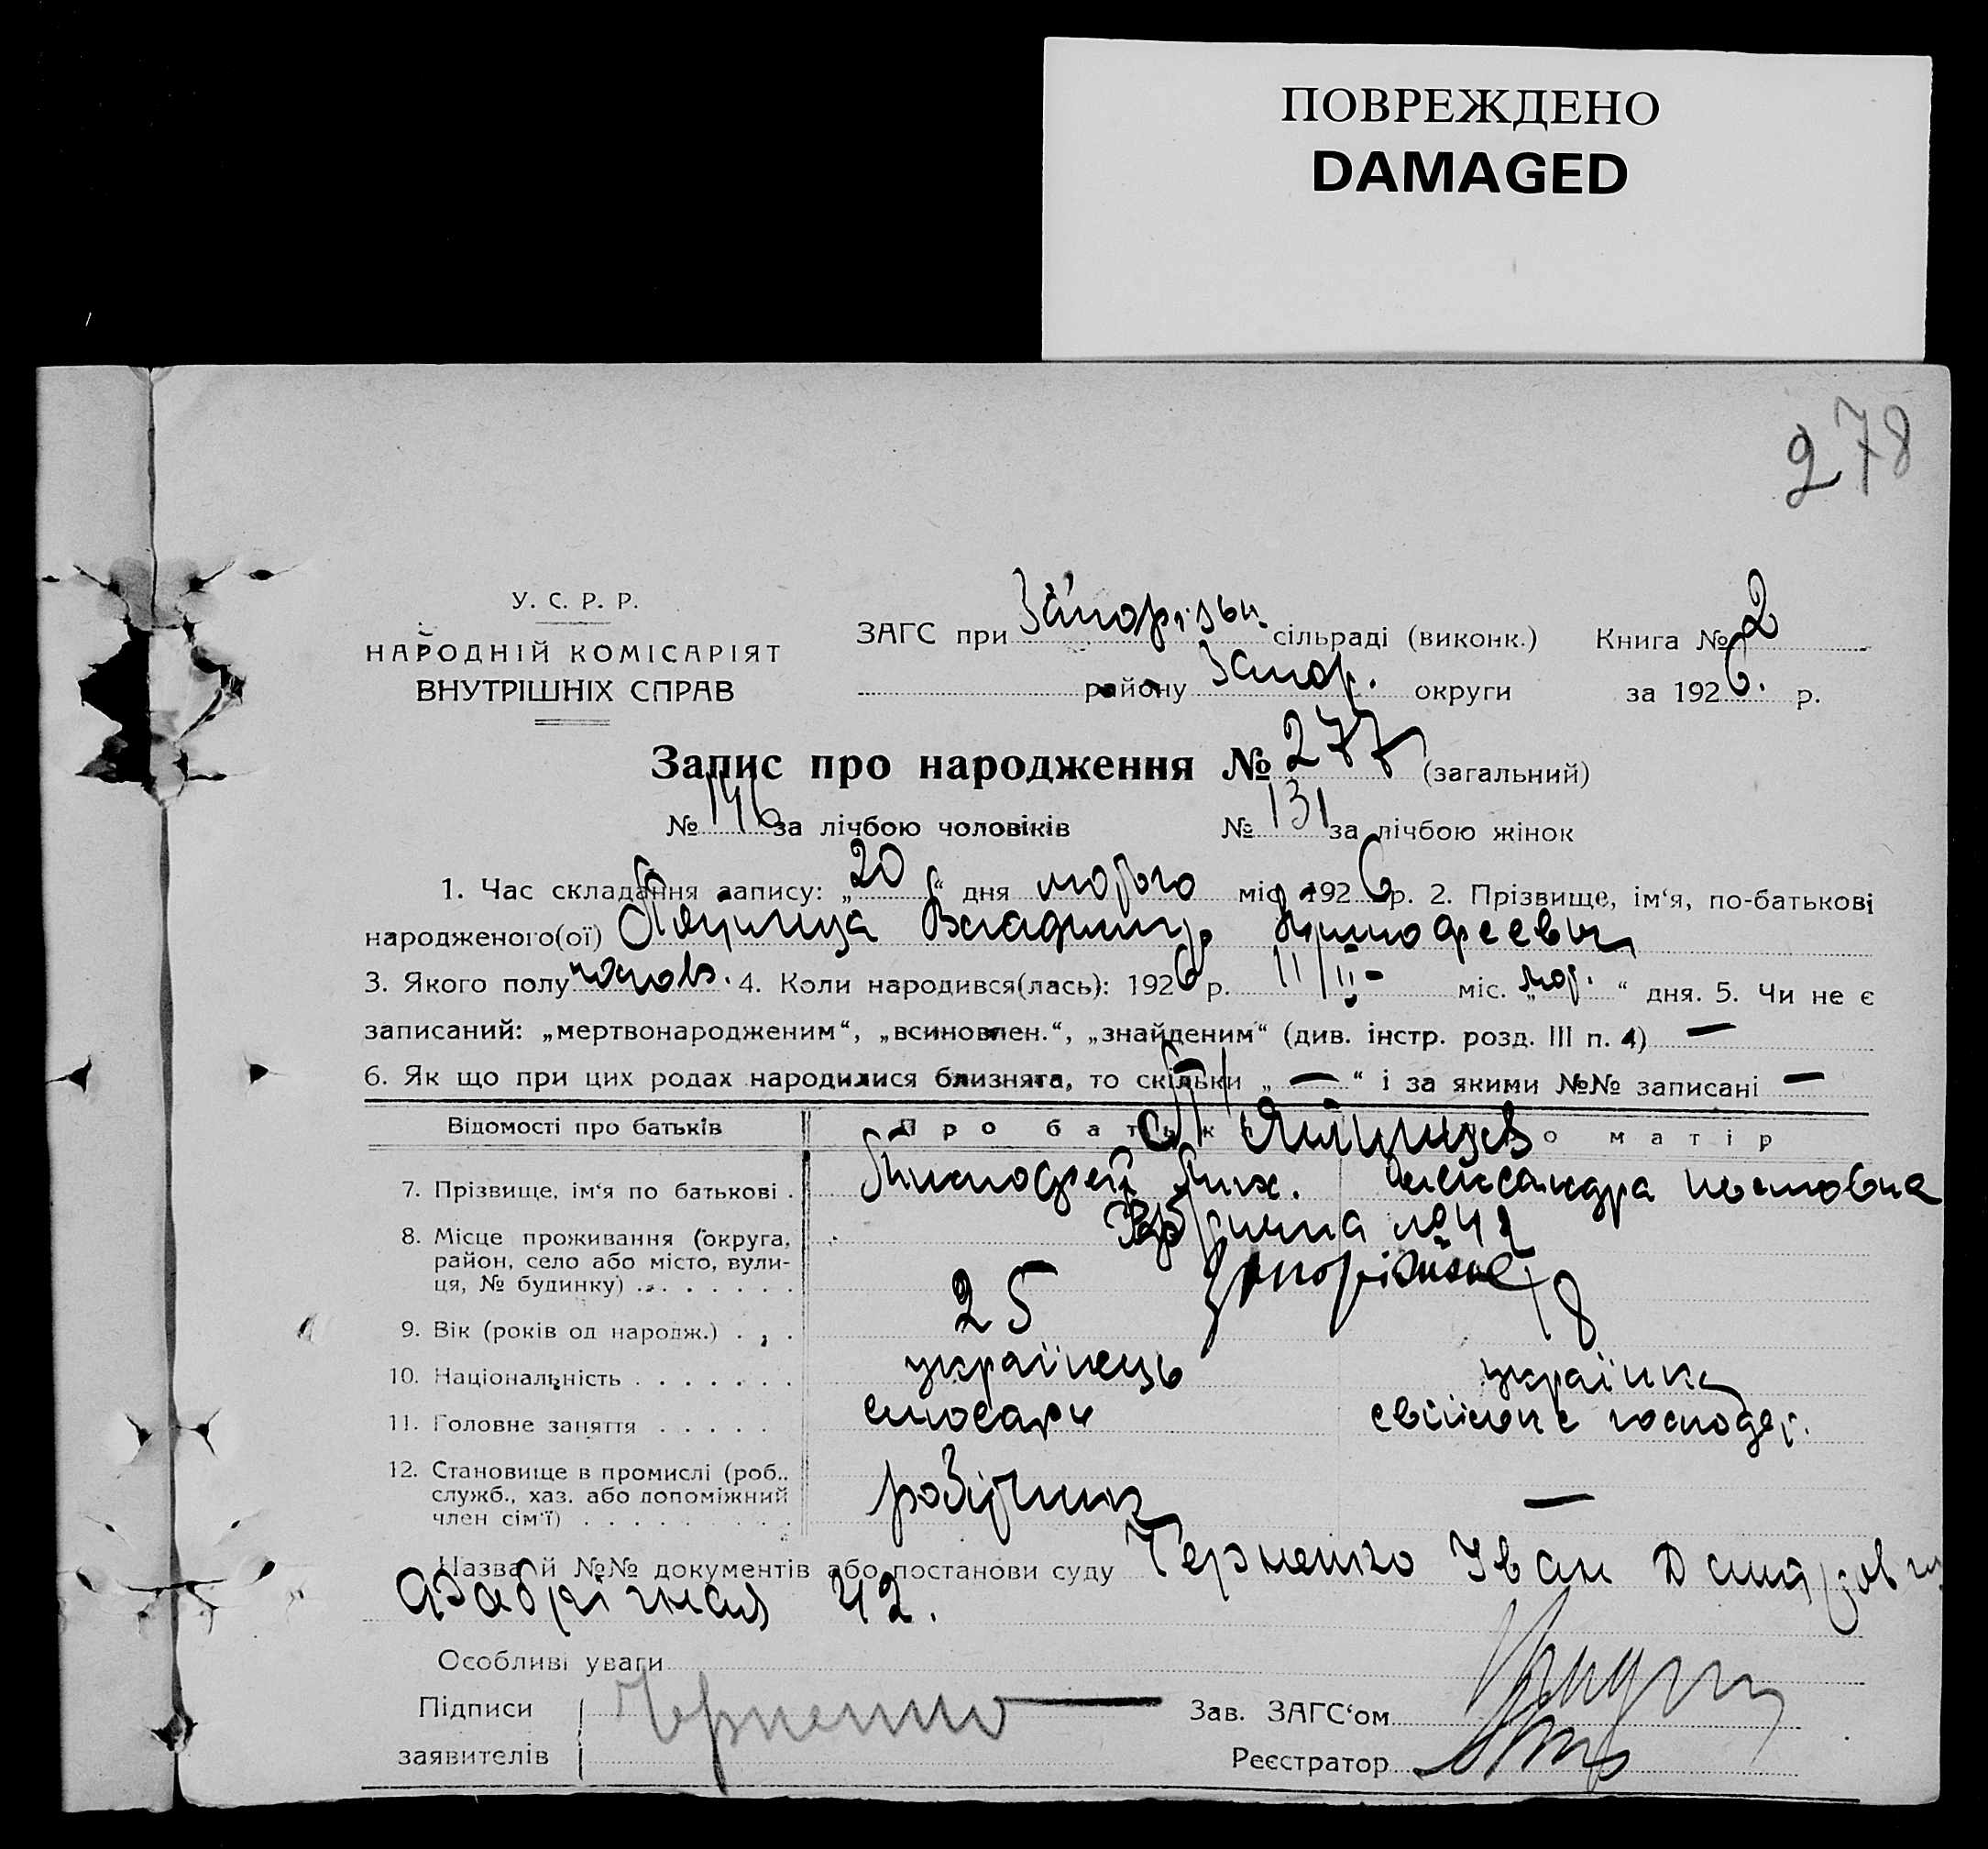 ПОВРЕЖДЕНО
DAMAGED
278
У. С. Р. Р.
НАРОДНІЙ КОМІСАРІЯТ
ВНУТРІШНІХ СПРАВ
ЗАГС при Запорізьк. сільраді (виконк.) Книга № 2
району Запор. округи за 1926. р.
Запис про народження № 277 (загальний)
№ 146 за лічбою чоловіків № 131 за лічбою жінок
1. Час складання запису: „20“ дня лютого міс. 1926 р. 2. Прізвище, ім‘я, по-батькові
народженого(ої) Владимир Тимофеевич
3. Якого полу чолов. 4. Коли народився(лась): 1926 р. 11/II- міс. „ “ дня. 5. Чи не є
записаний: „мертвонародженим“, „всиновлен.“, „знайденим“ (див. інстр. розд. III п. 4) —
6. Як що при цих родах народилися близнята, то скільки „—“ і за якими №№ записані —
Відомості про батьків Про батька Про матір
7. Прізвище, ім‘я по батькові . Тимофей Мих. Александра
8. Місце проживання (округа, № 42
район, село або місто, вули- Запоріжжє
ця, № будинку) . . . . . . .
9. Вік (років од народж.) . . . 25 18
10. Національність . . . . . . . українець українка
11. Головне заняття . . . . . слюсарь господар.
12. Становище в промислі (роб.. робітник —
служб., хаз. або допоміжний
член сім‘ї) . . . . . . . . .
Назва й №№ документів або постанови суду Черненко Іван Дмитрович
Фабрічная 42.
Особливі уваги
Підписи Черненко — Зав. ЗАГС‘ом
заявителів Реєстратор